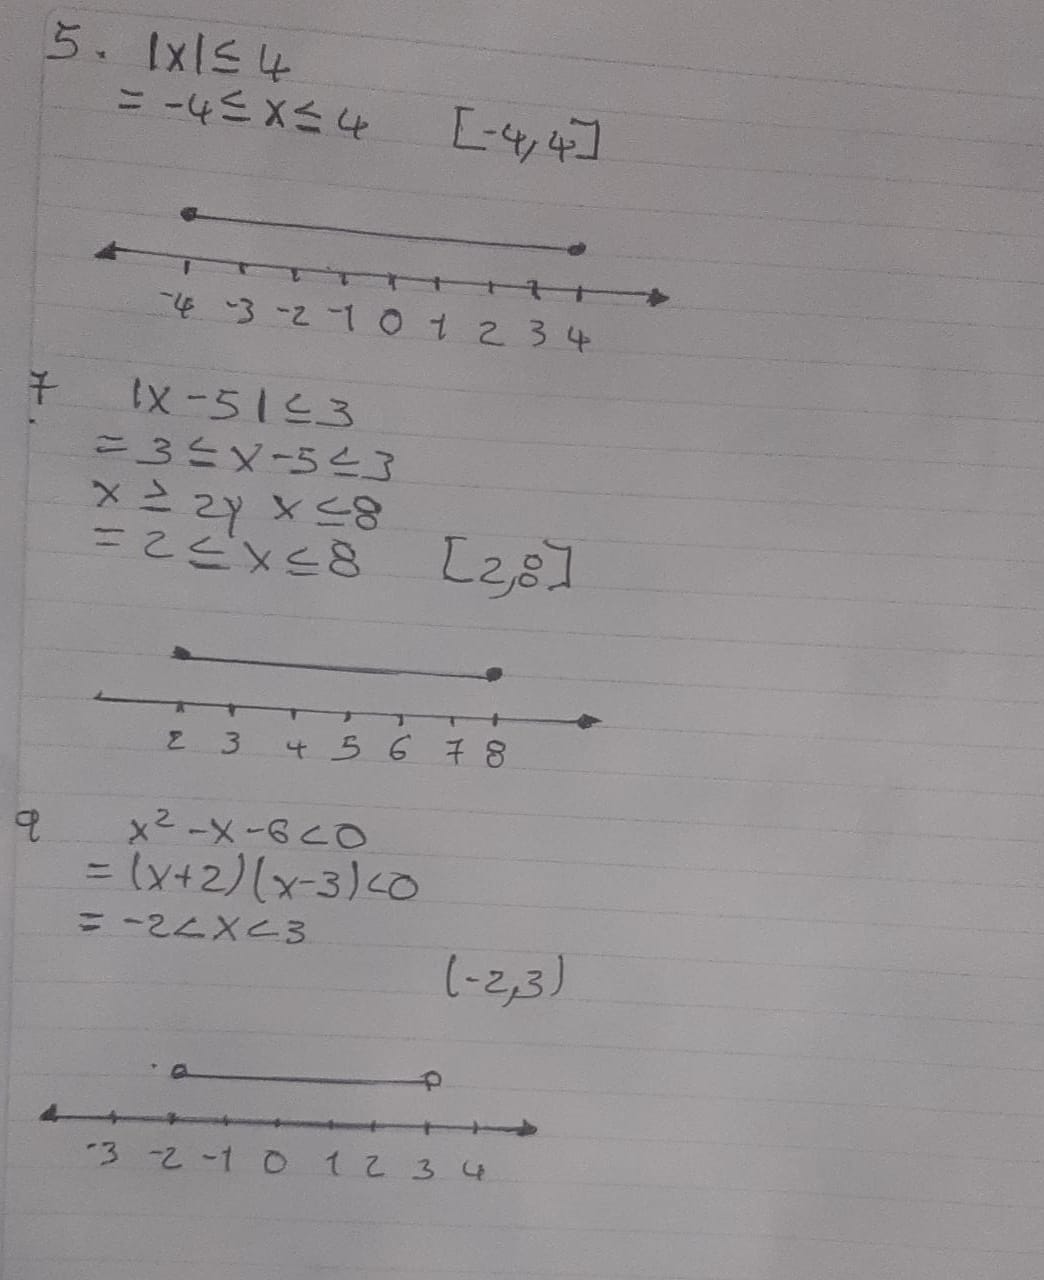 5. |x| ≤ 4
= -4 ≤ x ≤ 4 [-4,4]
-4 -3 -2 -1 0 1 2 3 4
7. |x - 5| ≤ 3
= 3 ≤ x - 5 ≤ 3
x ≥ 2 y x ≤ 8
= 2 ≤ x ≤ 8 [2,8]
2 3 4 5 6 7 8
9 x² - x - 6 < 0
= (x+2)(x-3) < 0
= -2 < x < 3
(-2,3)
-3 -2 -1 0 1 2 3 4